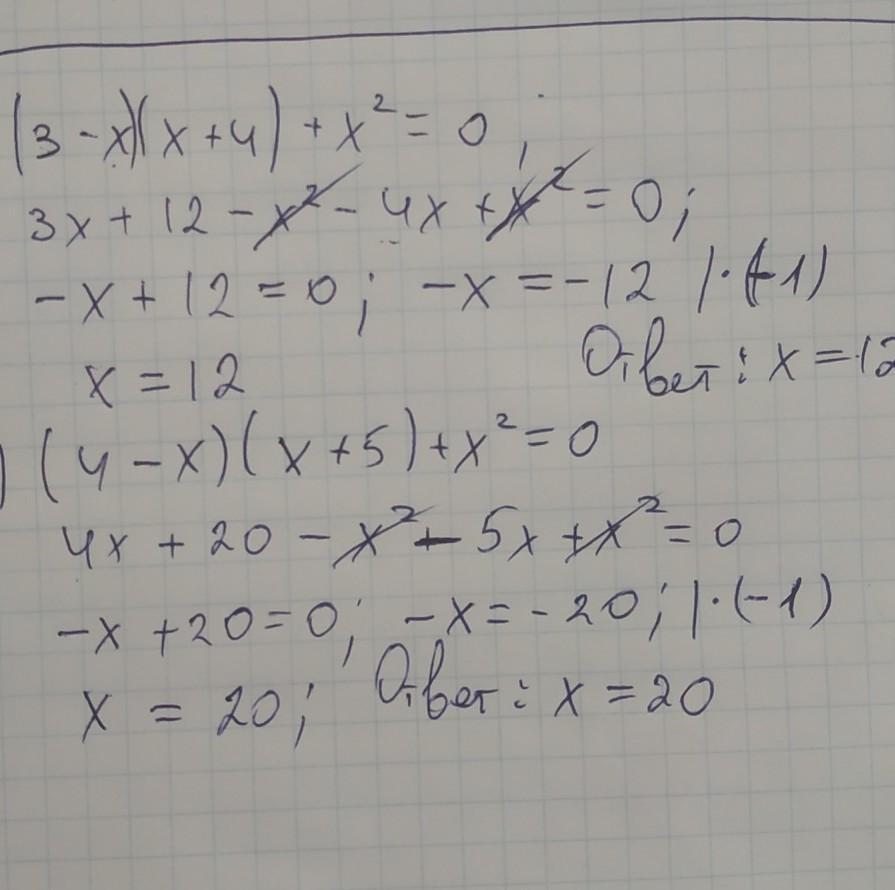 (3 - x)(x + 4) + x² = 0;
3x + 12 - x² - 4x + x² = 0;
-x + 12 = 0; -x = -12 | · (-1)
x = 12 Ответ: x = 12
) (4 - x)(x + 5) + x² = 0
4x + 20 - x² - 5x + x² = 0
-x + 20 = 0; -x = -20; | · (-1)
x = 20; Ответ: x = 20